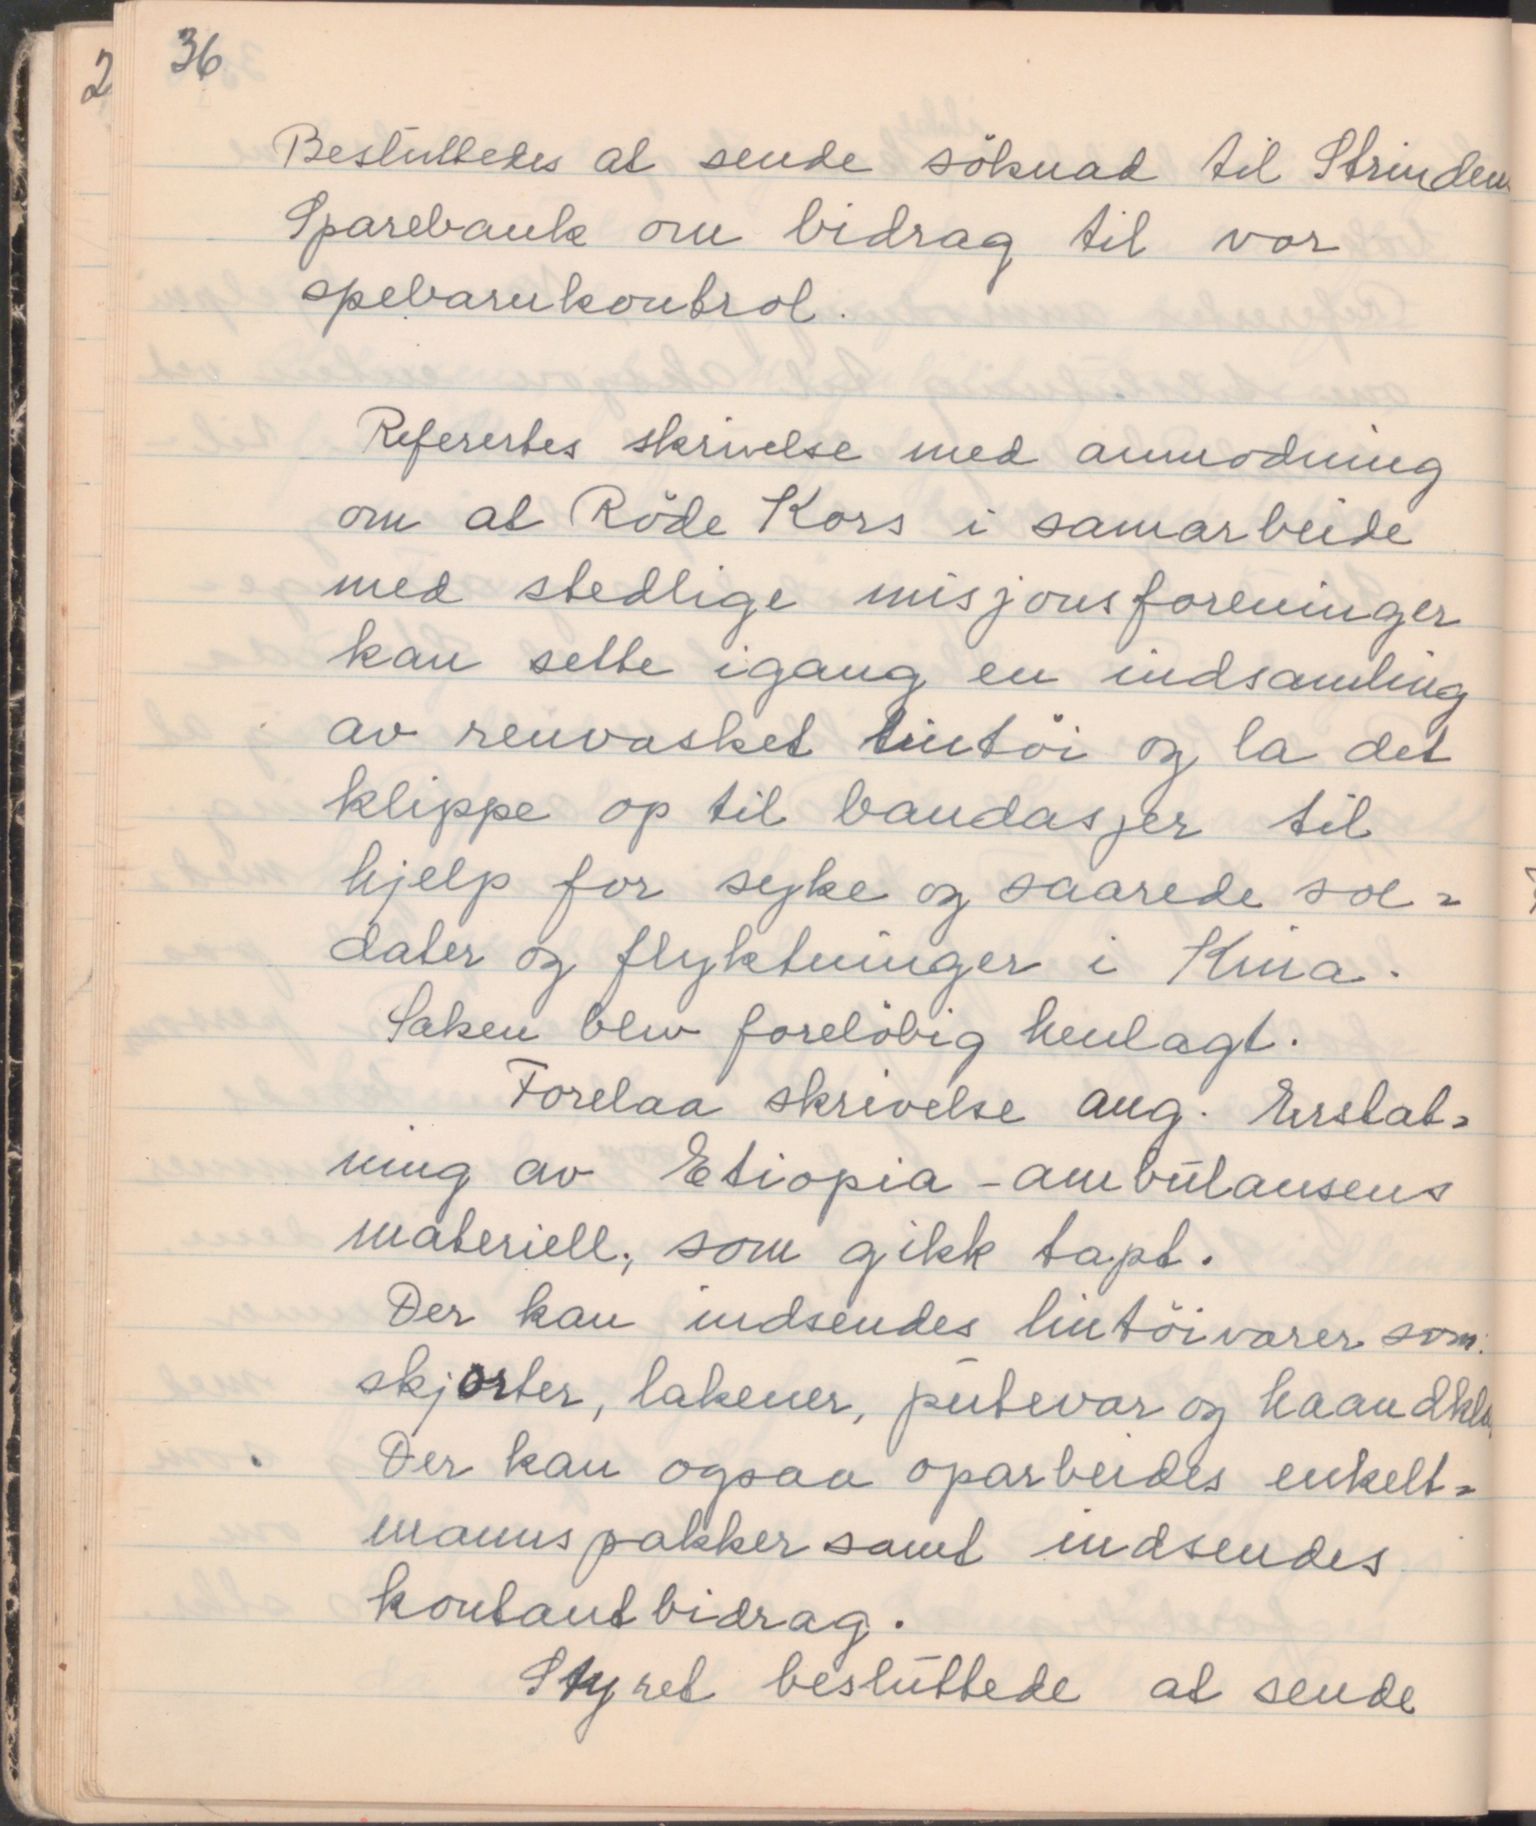 36
2
Besluttedes at sende söknad til Strinden
Sparebank om bidrag til vor
spebarnkontrol.
Referertes skrivelse med anmodning
om at Röde Kors i samarbeide
med stedlige misjonsforeninger
kan sette igang en indsamling
av renvasket lintöi og la det
klippe op til bandasjer til
hjelp for syke og saarede sol=
dater og flyktninger i Kina.
Saken blev forelöbig henlagt.
Forelaa skrivelse ang. Erstat=
ning av Etiopia-ambulansens
materiell, som gikk tapt.
Der kan indsendes lintöivarer som:
skjorter, lakener, putevar og haandklæ
Der kan ogsaa oparbeides enkelt=
mannspakker samt indsendes
kontantbidrag.
Styret besluttede at sende